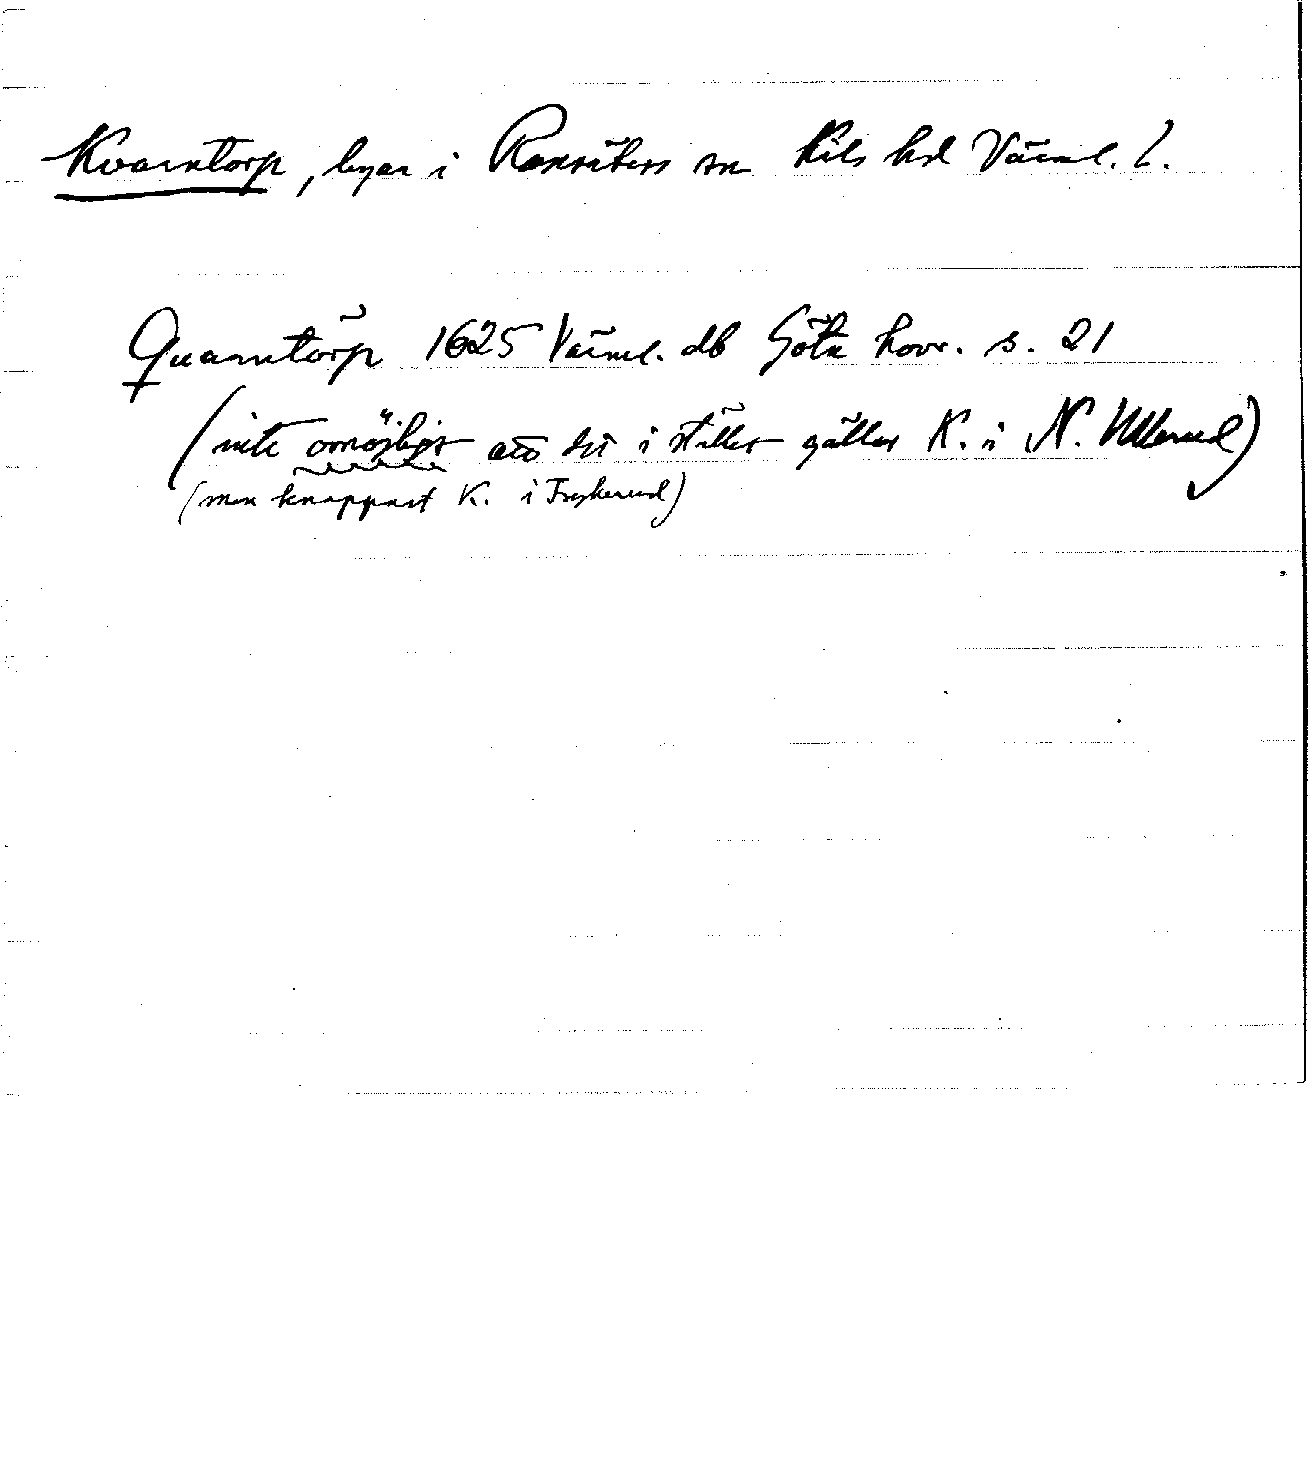 Kvarntorp, byar i Ransäters sn Kils hd Värml. l.
Quarntorp 1625 Värml. db Göta hovr. s. 21
(inte omöjligt att det i stället gäller K. i N. Ullerud)
(men knappast K. i Frykerud)